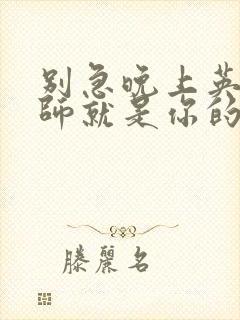 别急晚上英
师就是你的
滕麗名